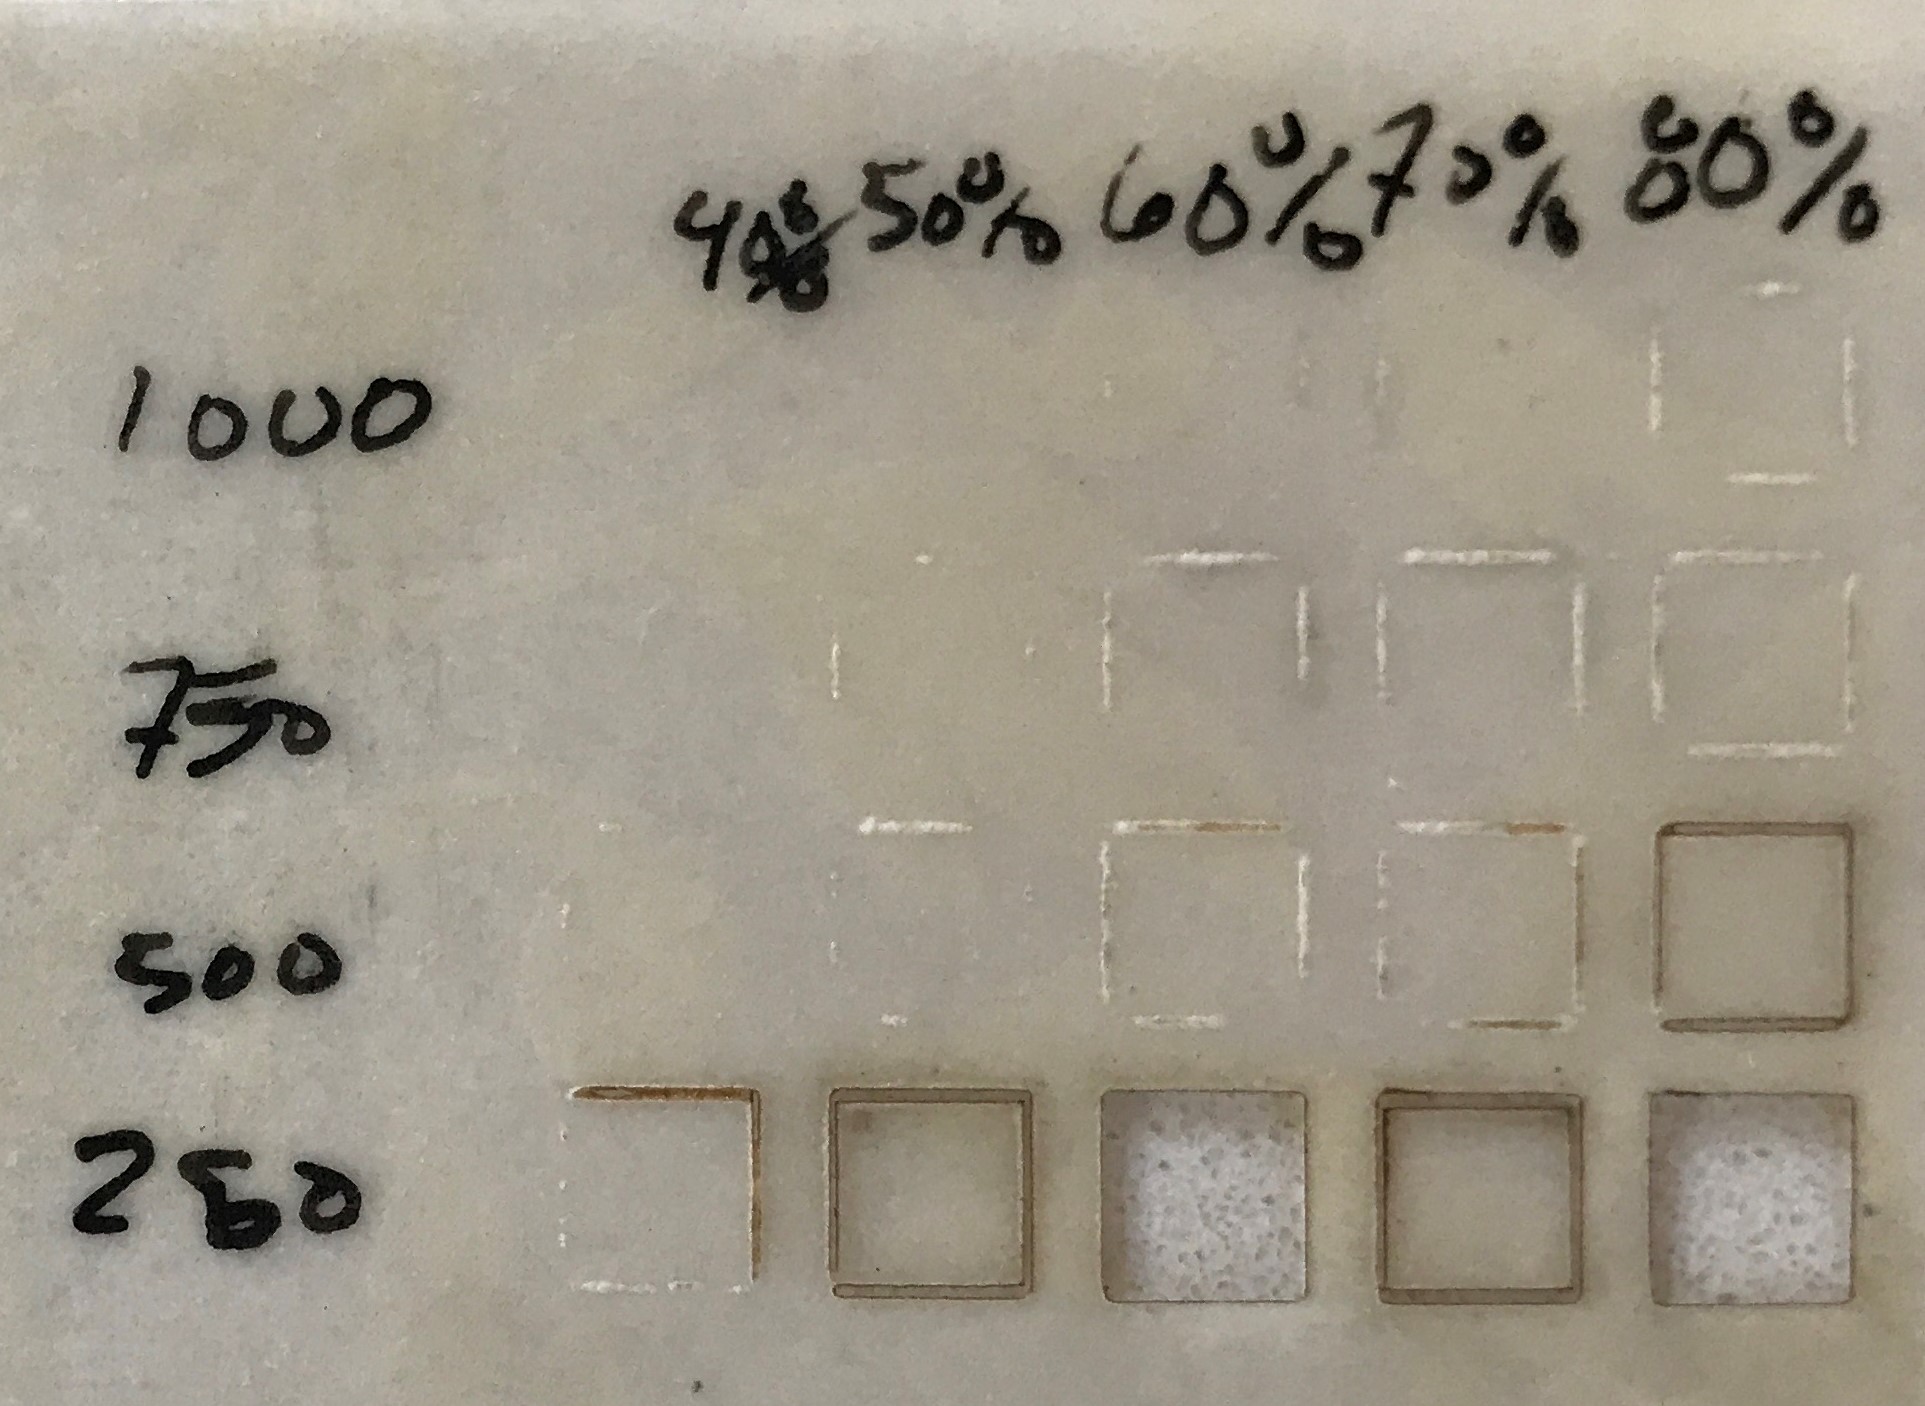 40% 50% 60% 70% 80%
1000
750
500
250